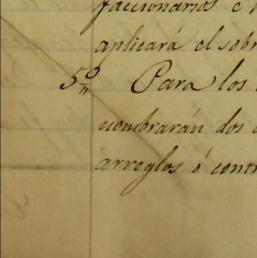 faccionarios e
aplicará el sobr
5º Para los
nombrarán dos
arreglos ó contr